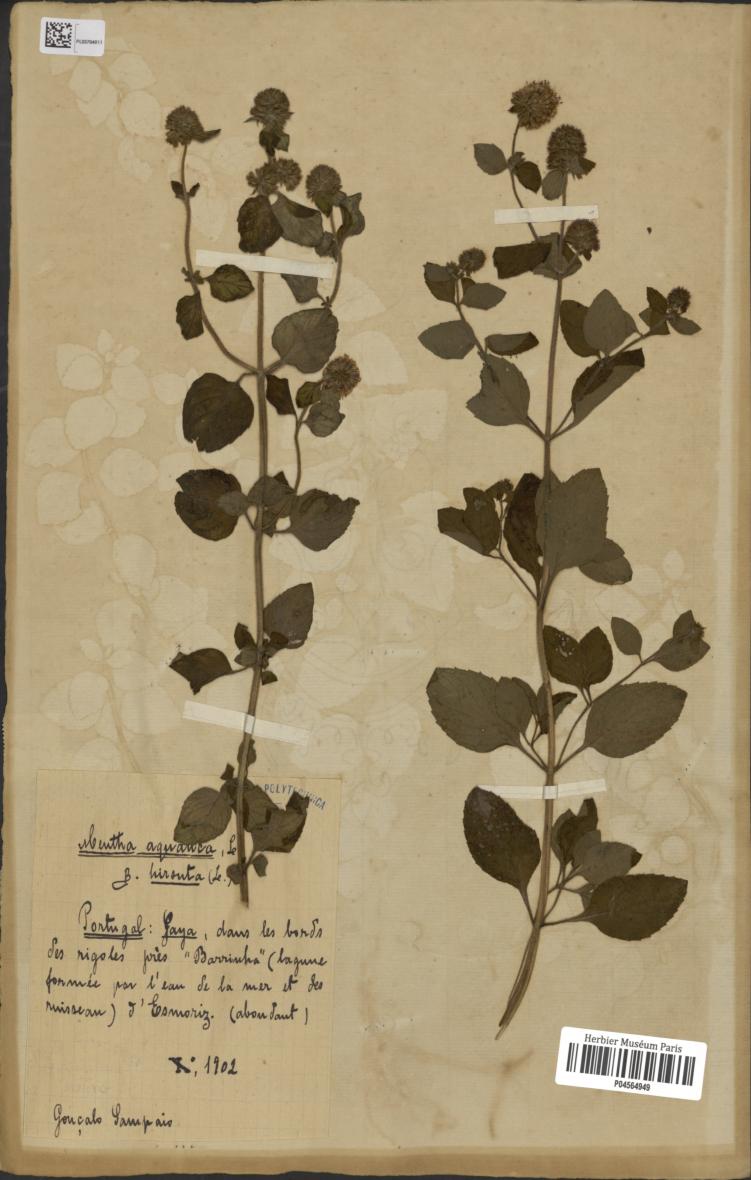 Mentha aquatica, L.
β. hirsuta (L.)
Portugal: Gaya, dans les bords
des rigoles près "Barrinha" (lagune
formée par l'eau de la mer et des
ruisseau) d'Esmoriz. (abondant)
X, 1902
Gonçalo Sampaio
POLYTECHNICA
Herbier Muséum Paris
P04564949